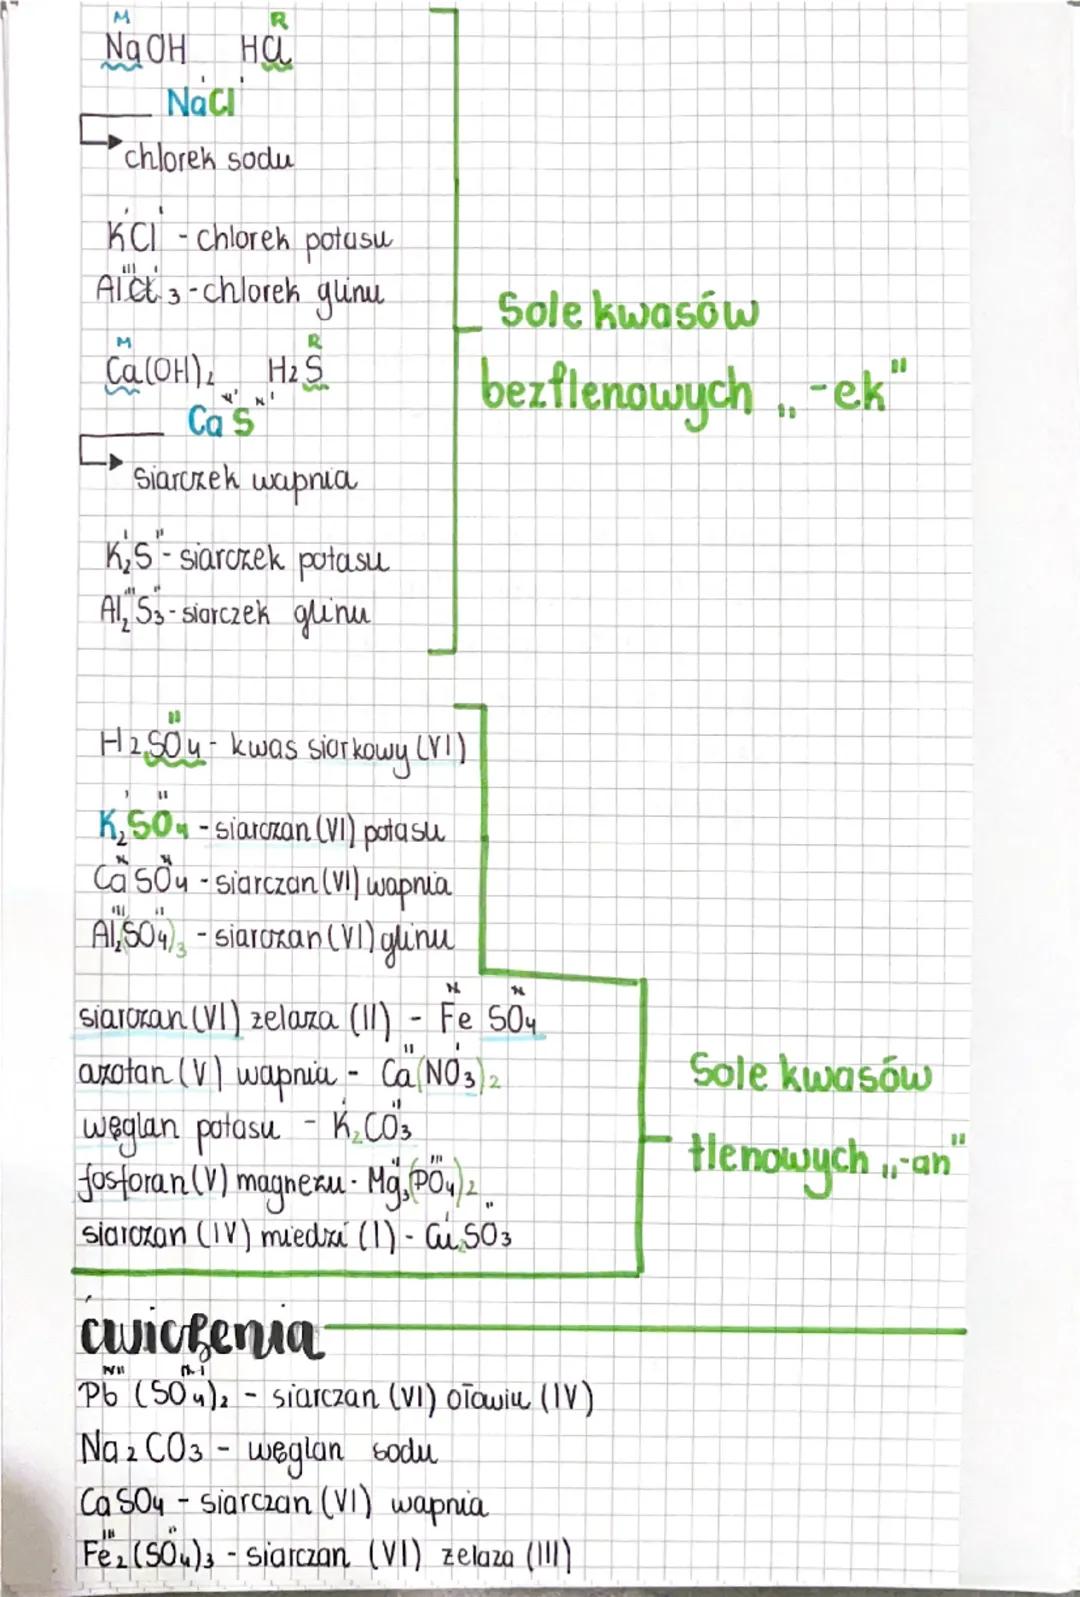 M R
NaOH HCl
I I
NaCl
chlorek sodu
I I
KCl - chlorek potasu
III I
AlCl3 - chlorek glinu
M R
Ca(OH)2 H2S
CaS
siarczek wapnia
I II
K2S - siarczek potasu
III II
Al2S3 - siarczek glinu
Sole kwasów
beztlenowych „-ek"
II
H2SO4 - kwas siarkowy (VI)
I II
K2SO4 - siarczan (VI) potasu
CaSO4 - siarczan (VI) wapnia
III II
Al2(SO4)3 - siarczan (VI) glinu
siarczan (VI) zelaza (II) - Fe SO4
II I
azotan (V) wapnia - Ca(NO3)2
I II
węglan potasu - K2CO3
II III
fosforan (V) magnezu - Mg3(PO4)2
I II
siarczan (IV) miedzi (I) - Cu2SO3
Sole kwasów
tlenowych „-an"
ćwiczenia
Pb (SO4)2 - siarczan (VI) ołowiu (IV)
Na2CO3 - węglan sodu
CaSO4 - siarczan (VI) wapnia
III II
Fe2(SO4)3 - siarczan (VI) zelaza (III)